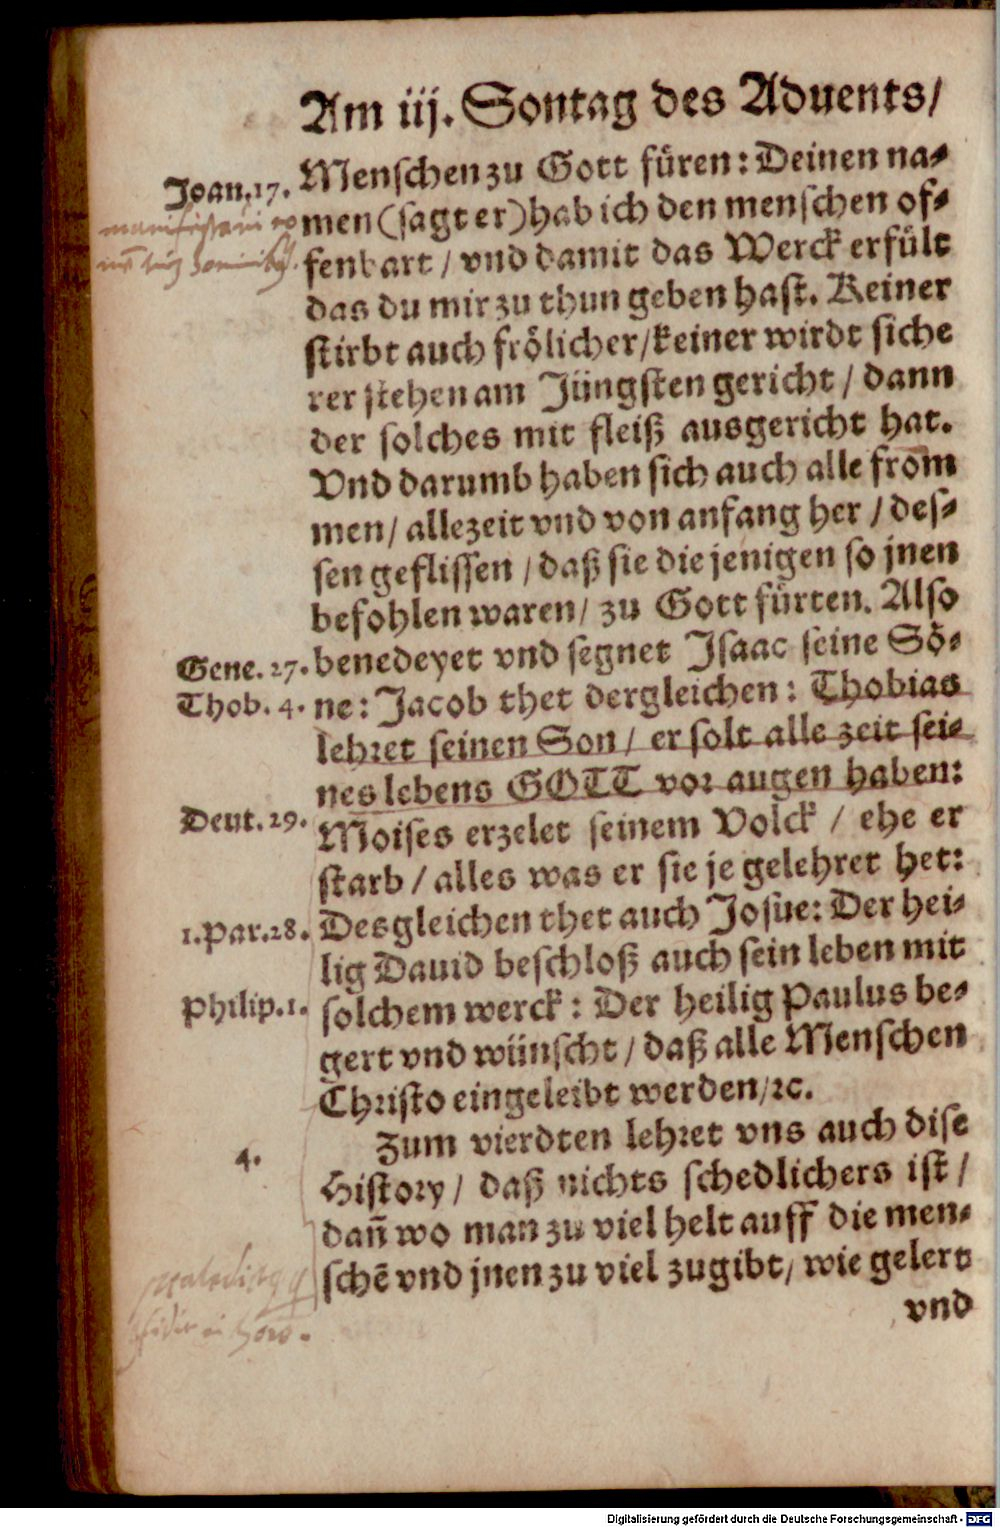 Am iij. Sontag des Aduents/
Joan.17.
Menschen zu Gott füren: Deinen na⸗
men (sagt er) hab ich den menschen of⸗
fenbart / vnd damit das Werck erfült
das du mir zu thun geben hast. Keiner
stirbt auch frölicher/keiner wirdt siche
rer stehen am Jüngsten gericht / dann
der solches mit fleiß ausgericht hat.
Vnd darumb haben sich auch alle from
men/ allezeit vnd von anfang her / des⸗
sen geflissen / daß sie die jenigen so jnen
befohlen waren/ zu Gott fürten. Also
Gene. 27.
benedeyet vnd segnet Isaac seine Sö⸗
Thob. 4.
ne: Jacob thet dergleichen: Thobias
lehret seinen Son / er solt alle zeit sei⸗
nes lebens GOTT vor augen haben:
Deut. 29.
Moises erzelet seinem Volck / ehe er
starb / alles was er sie je gelehret het:
1.Par.28.
Desgleichen thet auch Josue: Der hei⸗
lig Dauid beschloß auch sein leben mit
Philip.1.
solchem werck: Der heilig Paulus be⸗
gert vnd wünscht / daß alle Menschen
Christo eingeleibt werden/ꝛc.
4.
Zum vierdten lehret vns auch dise
History / daß nichts schedlichers ist /
dañ wo man zu viel helt auff die men⸗
schē vnd jnen zu viel zugibt/ wie gelert
vnd
Digitalisierung gefördert durch die Deutsche Forschungsgemeinschaft - DFG